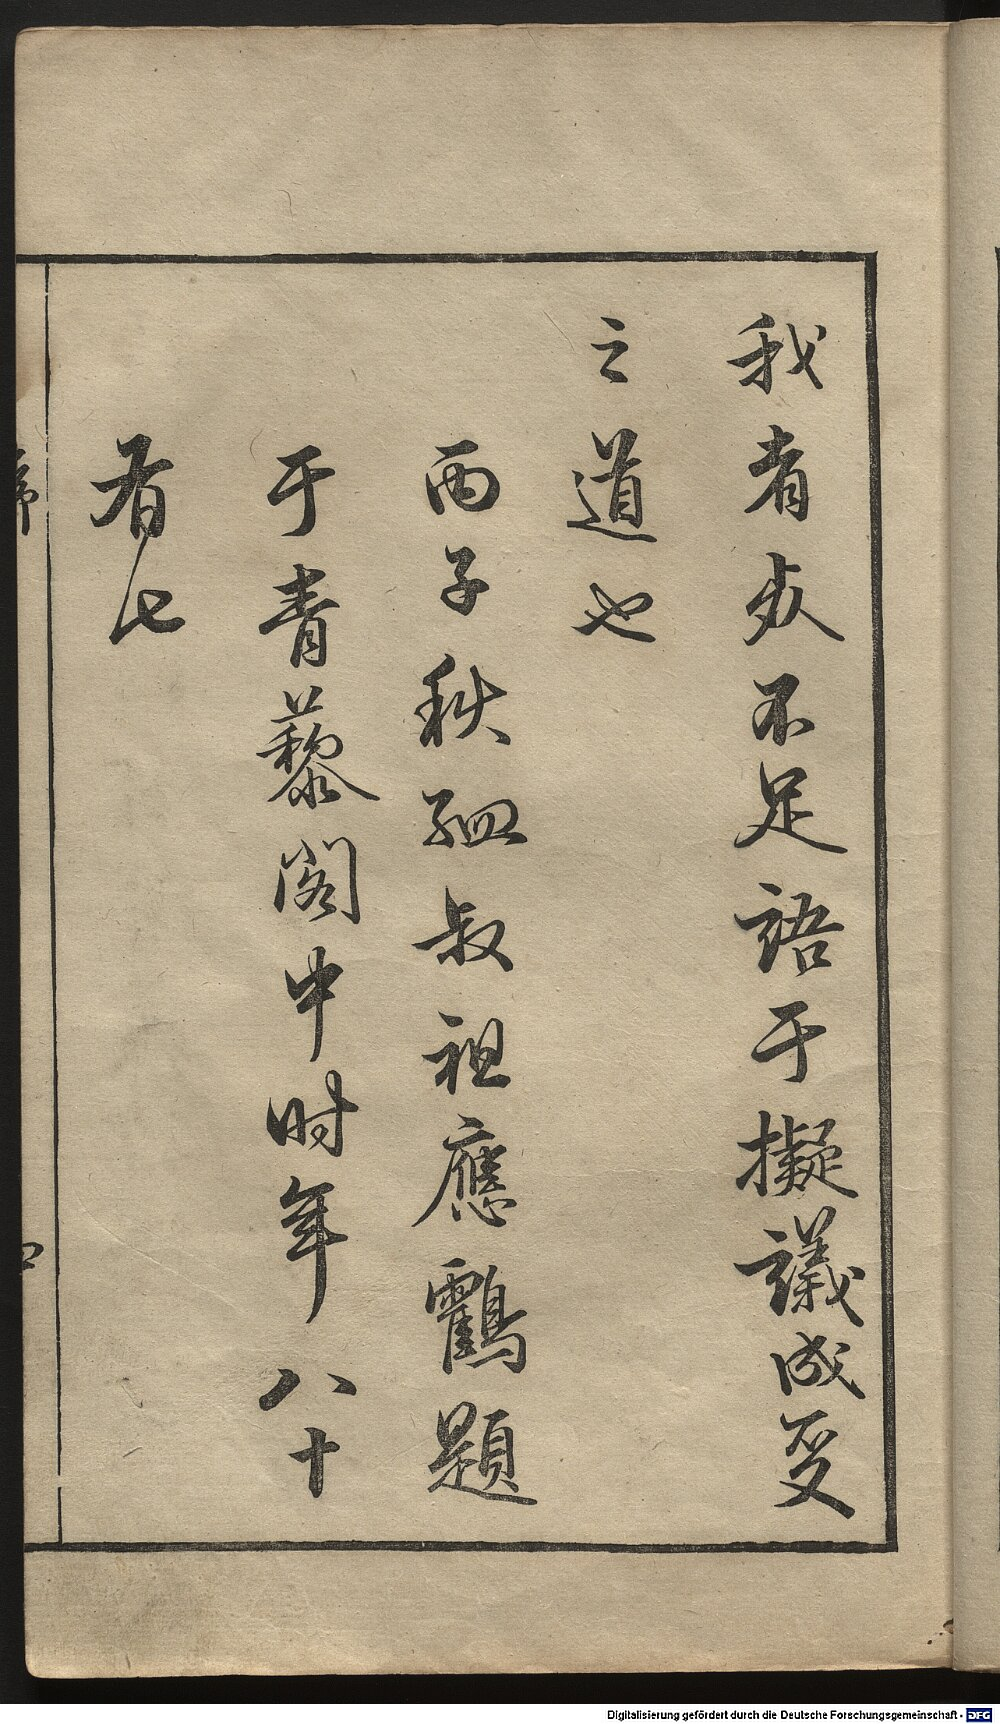 我者不足語于擬議成変
之道也
丙子秋叔祖應鸖題
于青藜閣中时年八十
有七
序
四
Digitalisierung gefördert durch die Deutsche Forschungsgemeinschaft - DFG